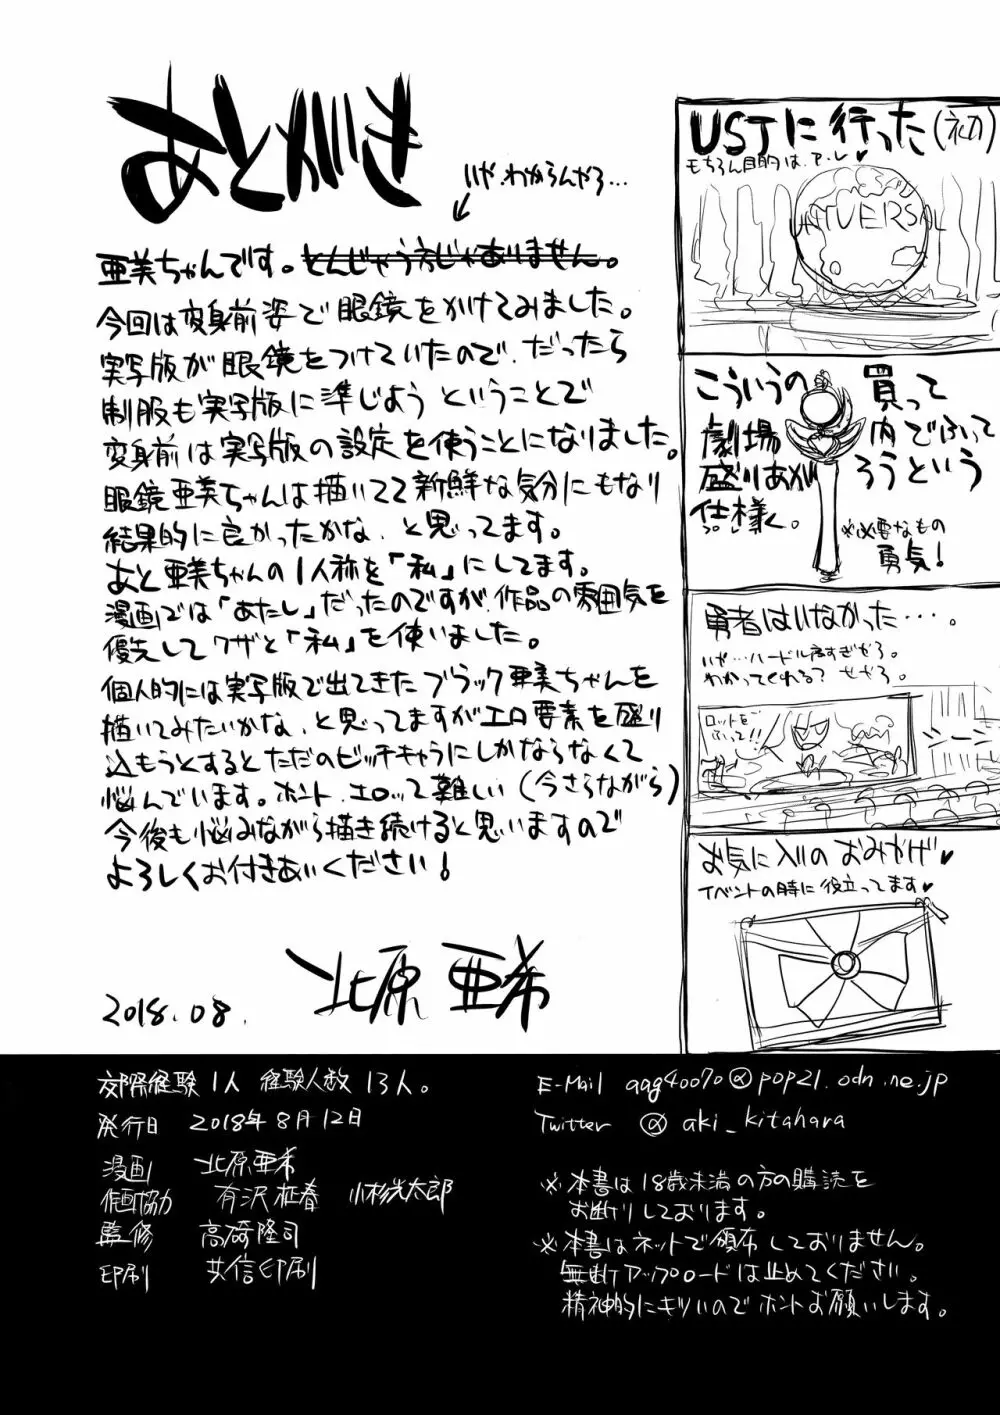 あとがき
いや、わからんやろ…
亜美ちゃんです。とんじゃう方じゃありません。
今回は変身前姿で眼鏡をかけてみました。
実写版が眼鏡をつけていたので、だったら
制服も実写版に準じようということで
変身前は実写版の設定を使うことになりました。
眼鏡亜美ちゃんは描いてて新鮮な気分にもなり
結果的に良かったかな、と思ってます。
あと亜美ちゃんの1人称を「私」にしてます。
漫画では「あたし」だったのですが、作品の雰囲気を
優先してワザと「私」を使いました。
個人的には実写版で出てきたブラック亜美ちゃんを
描いてみたいかな、と思ってますがエロ要素を盛り
込もうとするとただのビッチキャラにしかならなくて
悩んでいます。ホント、エロって難しい(今さらながら)
今後も悩みながら描き続けると思いますので
よろしくお付きあいください!
2018.08.
北原亜希
USJに行った(初)
もちろん目的はア・レ♥
UNIVERSAL
こういうの買って
劇場内でふって
盛りあがろうという
仕様。
※必要なもの
勇気!
勇者はいなかった・・・・。
いや…ハードル高すぎだろ。
わかってくれる?せやろ。
ロッドを
ふって!!
シーン
お気に入りのおみやげ♥
イベントの時に役立ってます♥
交際経験1人 経験人数13人。
発行日 2018年8月12日
漫画 北原亜希
作画協力 有沢柾春 小杉光太郎
監修 高崎隆司
印刷 共信印刷
E-Mail qqg40070@pop21.odn.ne.jp
Twitter @aki_kitahara
※本書は18歳未満の方の購読を
お断りしております。
※本書はネットで頒布しておりません。
無断アップロードは止めてください。
精神的にキツいのでホントお願いします。